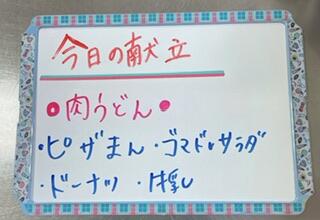 今日の献立
●肉うどん●
・ピザまん・ゴマドレサラダ
・ドーナツ・牛乳